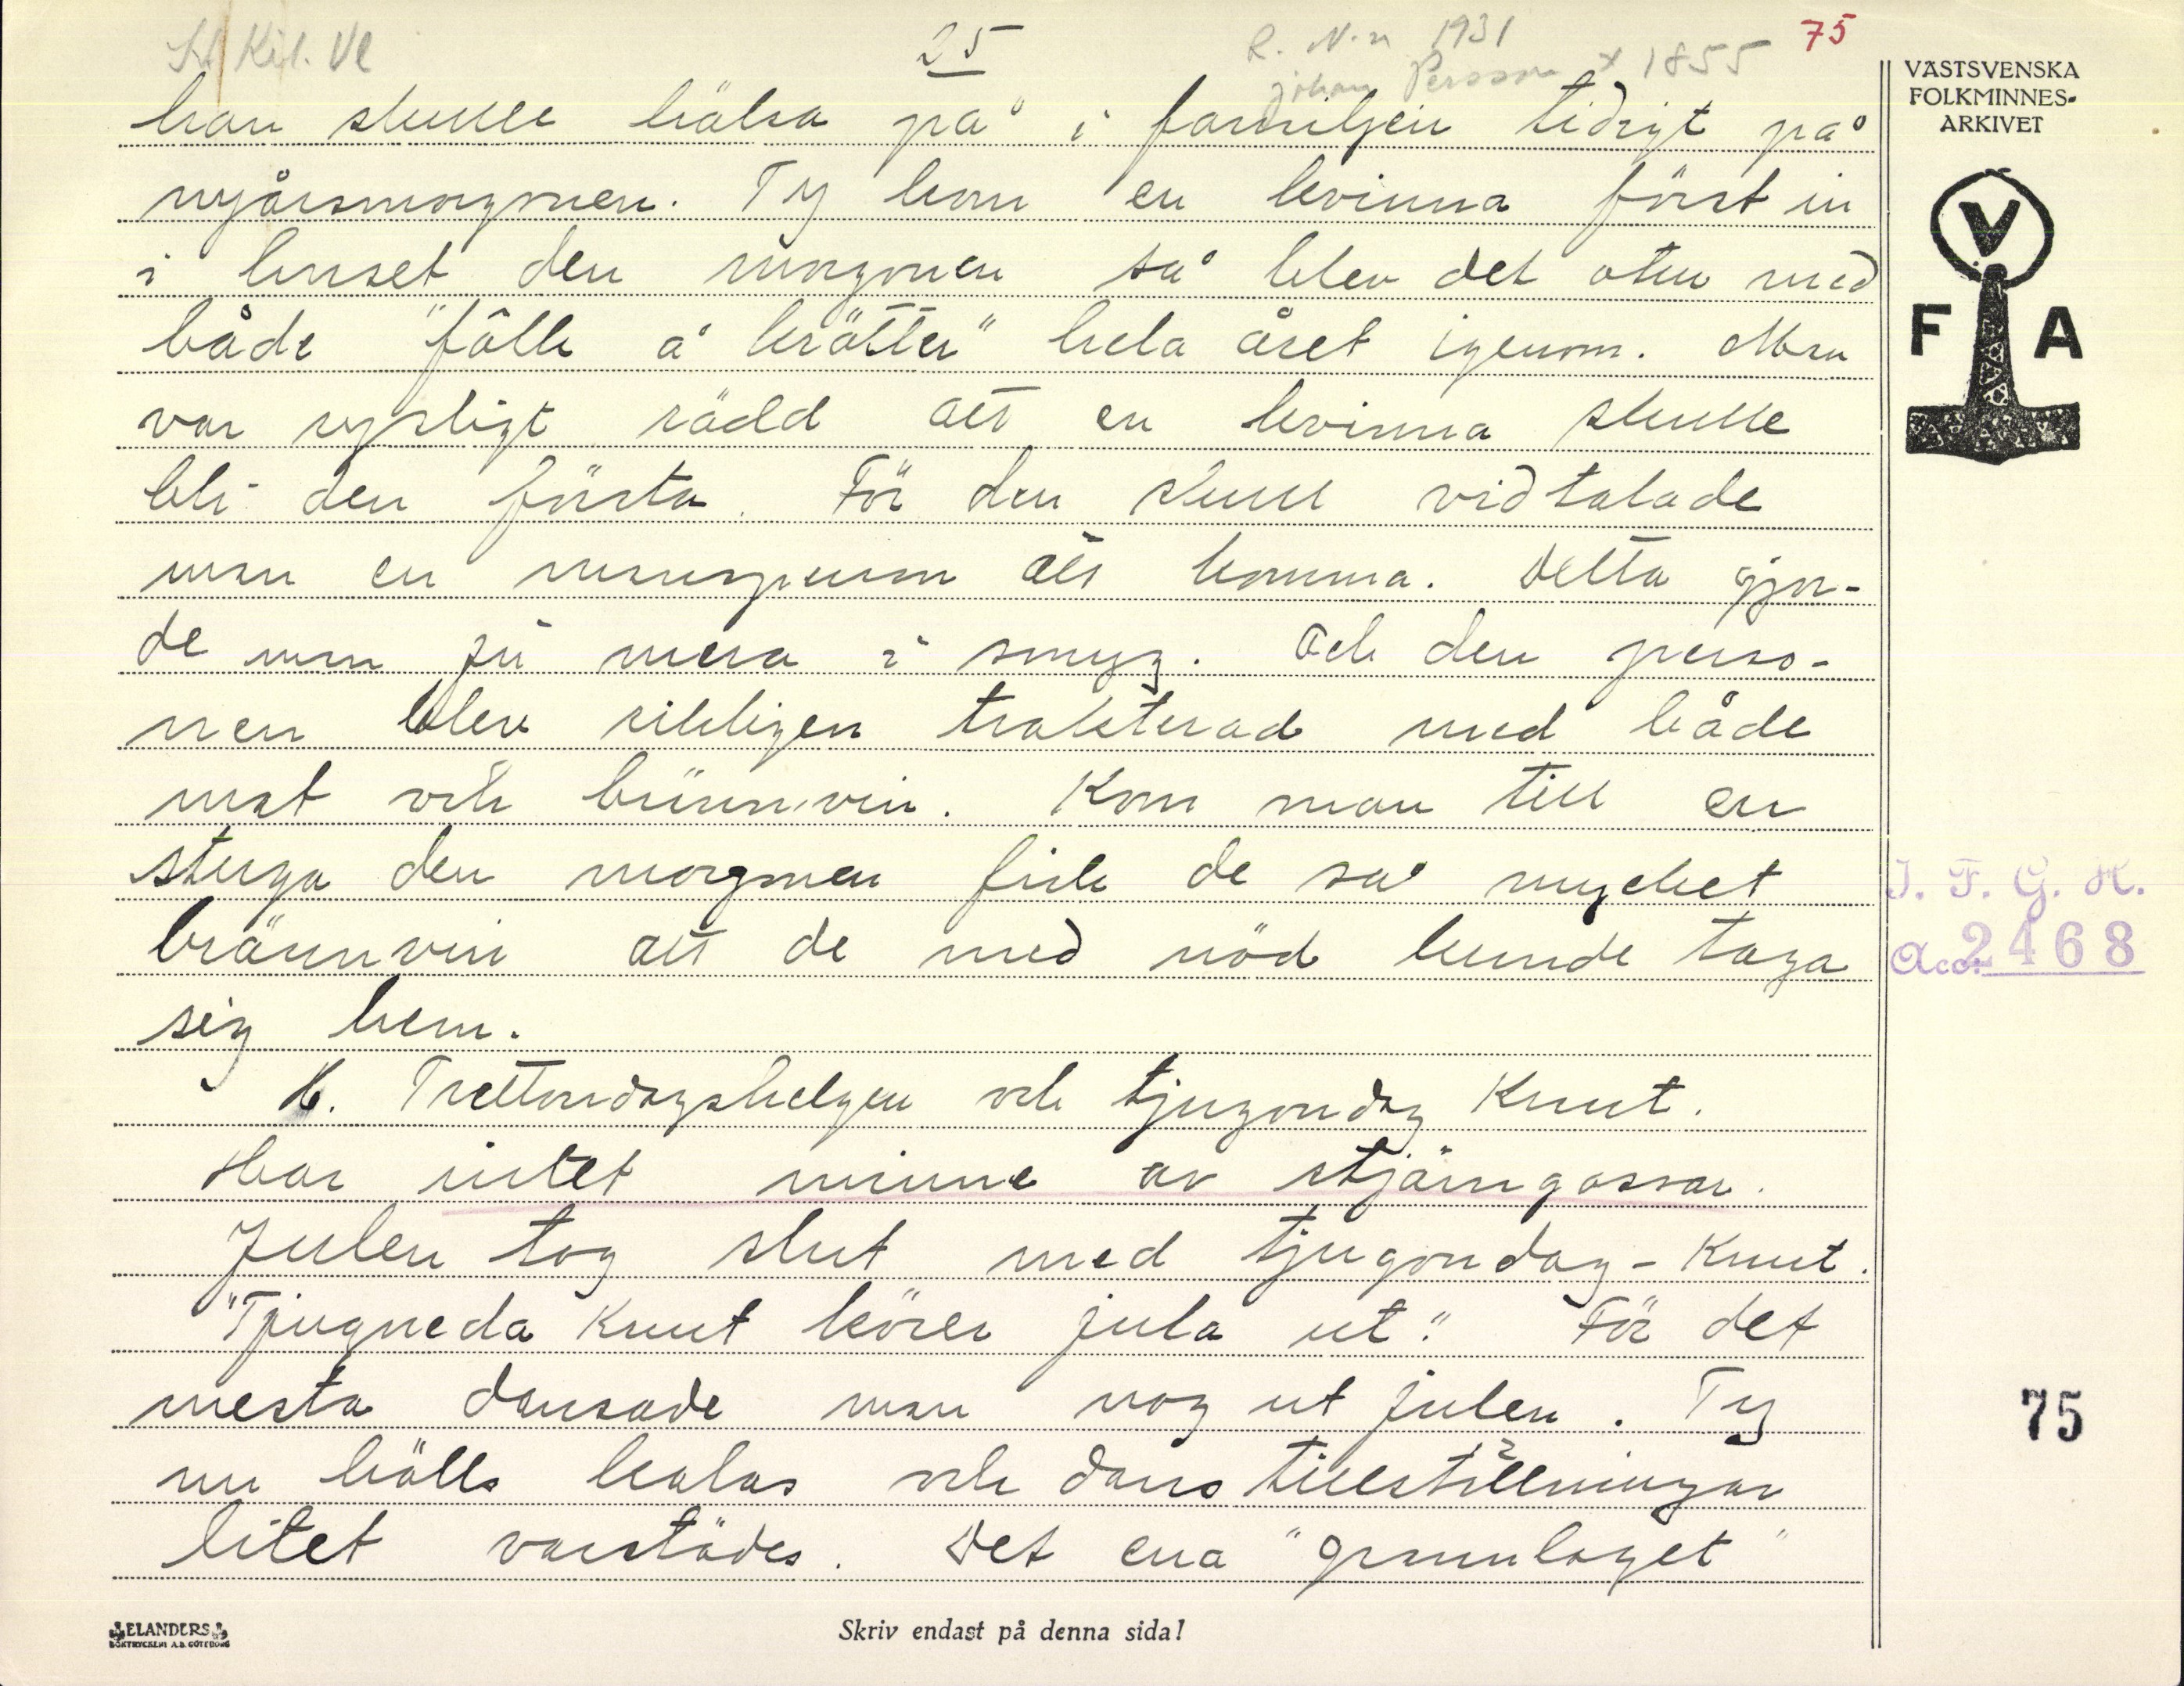 St Kil. Vl
25
R. N-n 1931
Johan Persson * 1855
75
VÄSTSVENSKA
FOLKMINNES-
ARKIVET
V
F A
han skulle hälsa på i familjen tidigt på
nyårsmorgonen. Ty kom en kvinna först in
i huset den morgonen så blev det otur med
både "fôlk å krötter" hela året igenom. Man
var rysligt rädd att en kvinna skulle
bli den första. För den skull vidtalade
man en mansperson att komma. Detta gjor-
de man ju mera i smyg. Och den perso-
nen blev rikligen trakterad med både
mat och brännvin. Kom man till en
stuga den morgonen fick de så mycket
brännvin att de med nöd kunde taga
sig hem.
H. Trettondagshelgen och tjugondag Knut.
Har intet minne av stjärngossar.
Julen tog slut med tjugondag-Knut.
"Tjugneda Knut körer jula ut." För det
mesta dansade man nog ut julen. Ty
nu hölls kalas och danstillställningar
litet varstädes. Det ena "grannlaget"
I. F. G. H.
Acc. 2468
75
ELANDERS
BOKTRYCKERI A.B. GÖTEBORG
Skriv endast på denna sida!